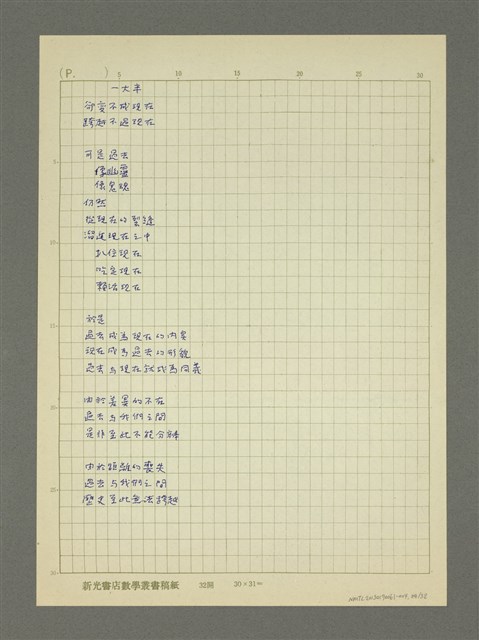 (P. )
5 10 15 20 25 30
一大半
改變不成現在
跨越不過現在
可是過去
像幽靈
像鬼魂
仍然
從現在的裂縫
溜進現在之中
扒住現在
吃定現在
賴活現在
於是
過去成為現在的內容
現在成為過去的形貌
過去與現在就成為同義
由於差異的不在
過去與我們之間
是作至此不能分辨
由於距離的喪失
過去與我們之間
歷史至此無法跨越
5
10
15
20
25
30
新光書店數學叢書稿紙 32開 30×31